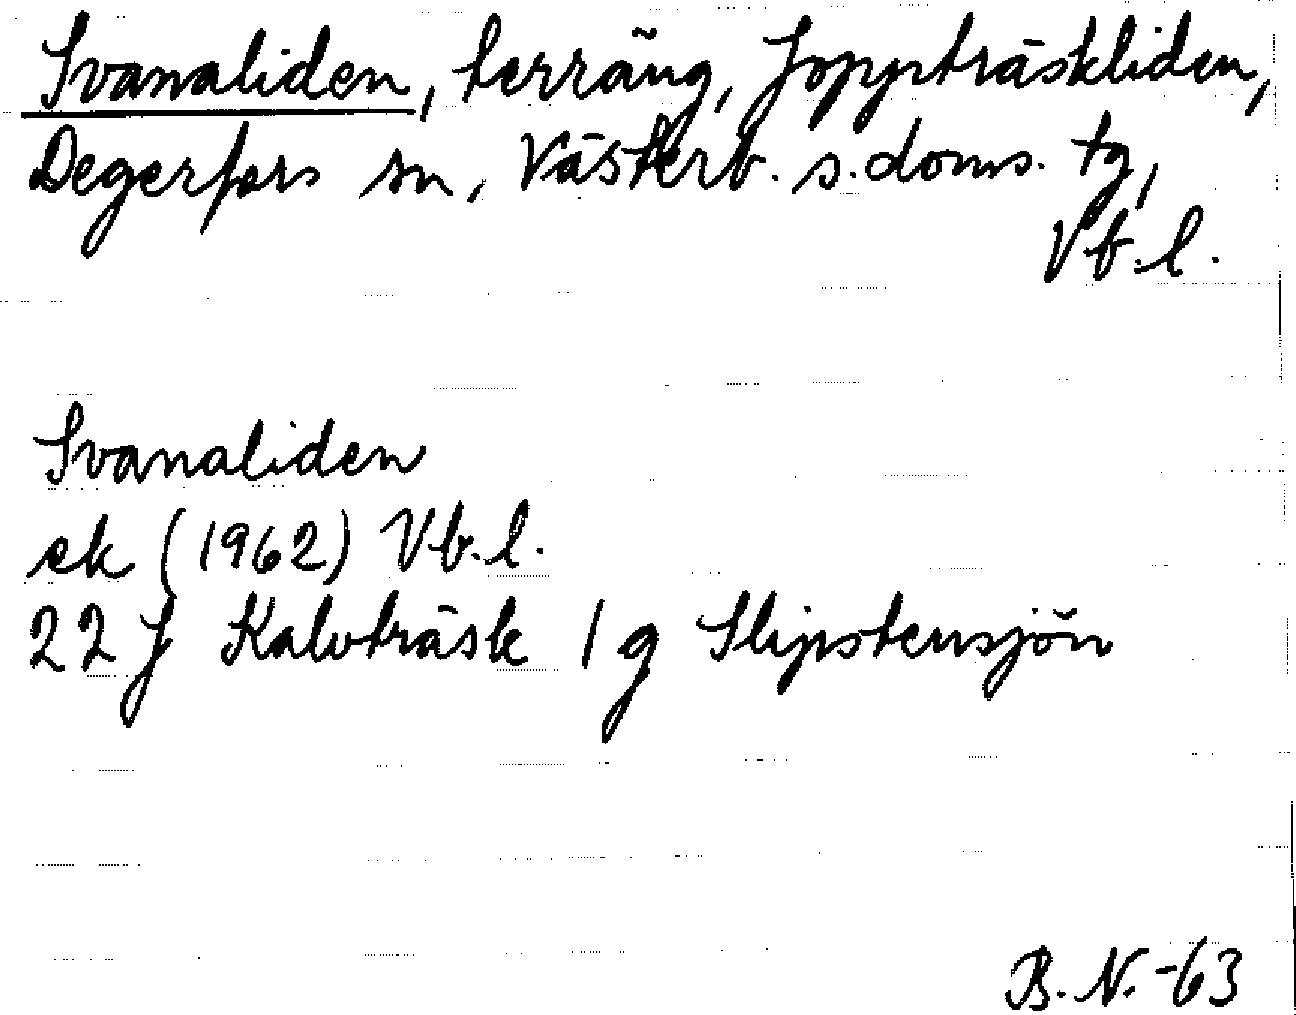 Svanaliden, terräng, Joppträskliden,
Degerfors sn, Västerb. s. doms. tg,
Vb. l.
Svanaliden
ek (1962) Vb. l.
22 J Kalvträsk 1 g Slipstensjön
B. N. -63